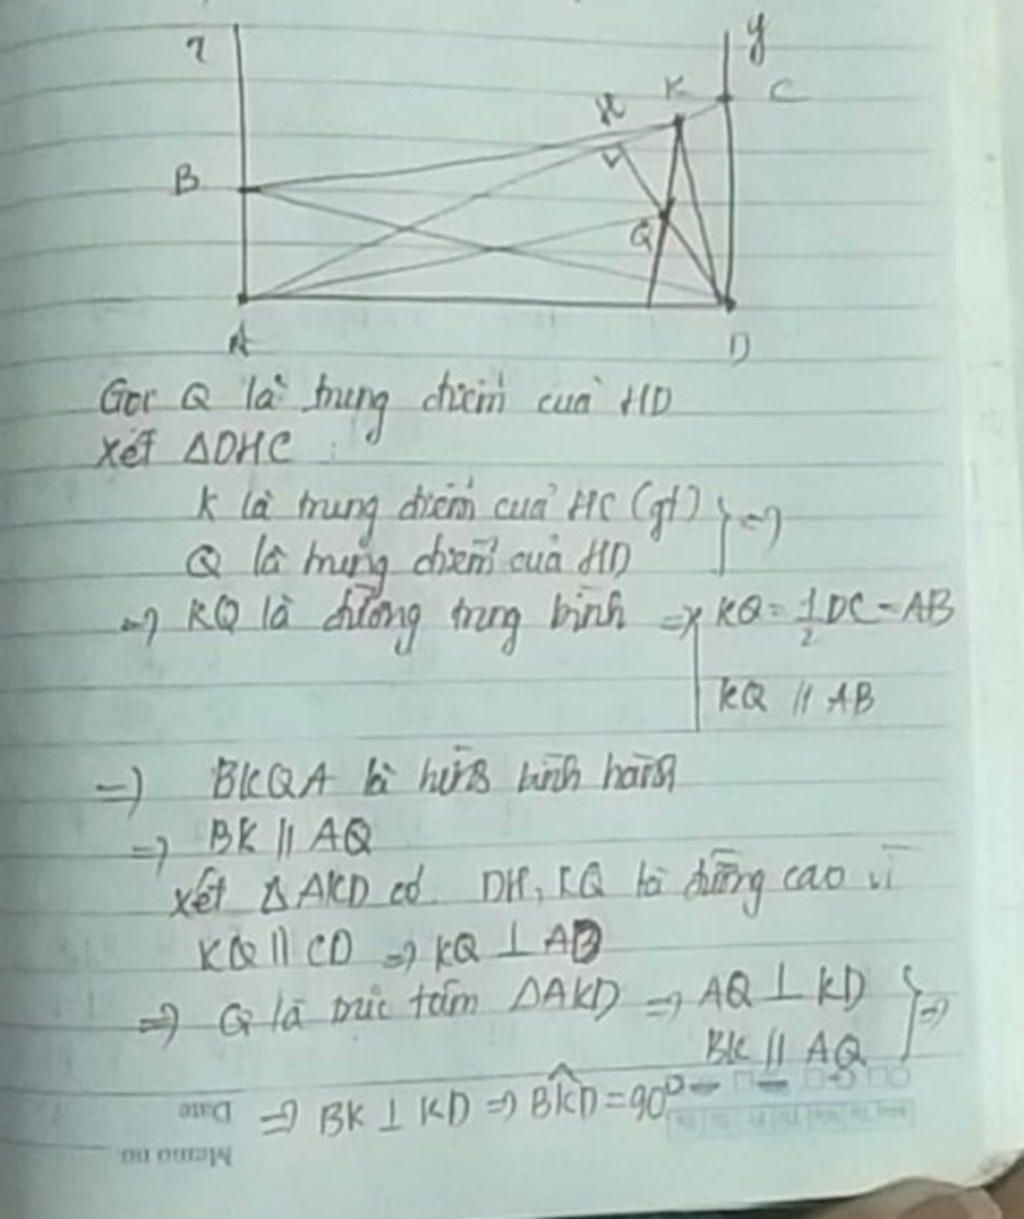 y
H K C
B
Q
A D
Gọi Q là trung điểm của HD
Xét ΔDHC :
K là trung điểm của HC (gt) } =>
Q là trung điểm của HD
=> KQ là đường trung bình => KQ = 1/2 DC = AB
KQ // AB
=> BKQA là hình bình hành
=> BK // AQ
Xét ΔAKD có DH, KQ là đường cao vì
KQ // CD => KQ ⊥ AD
=> Q là trực tâm ΔAKD => AQ ⊥ KD } =>
BK // AQ
=> BK ⊥ KD => BKD = 90°
Date
Memo no